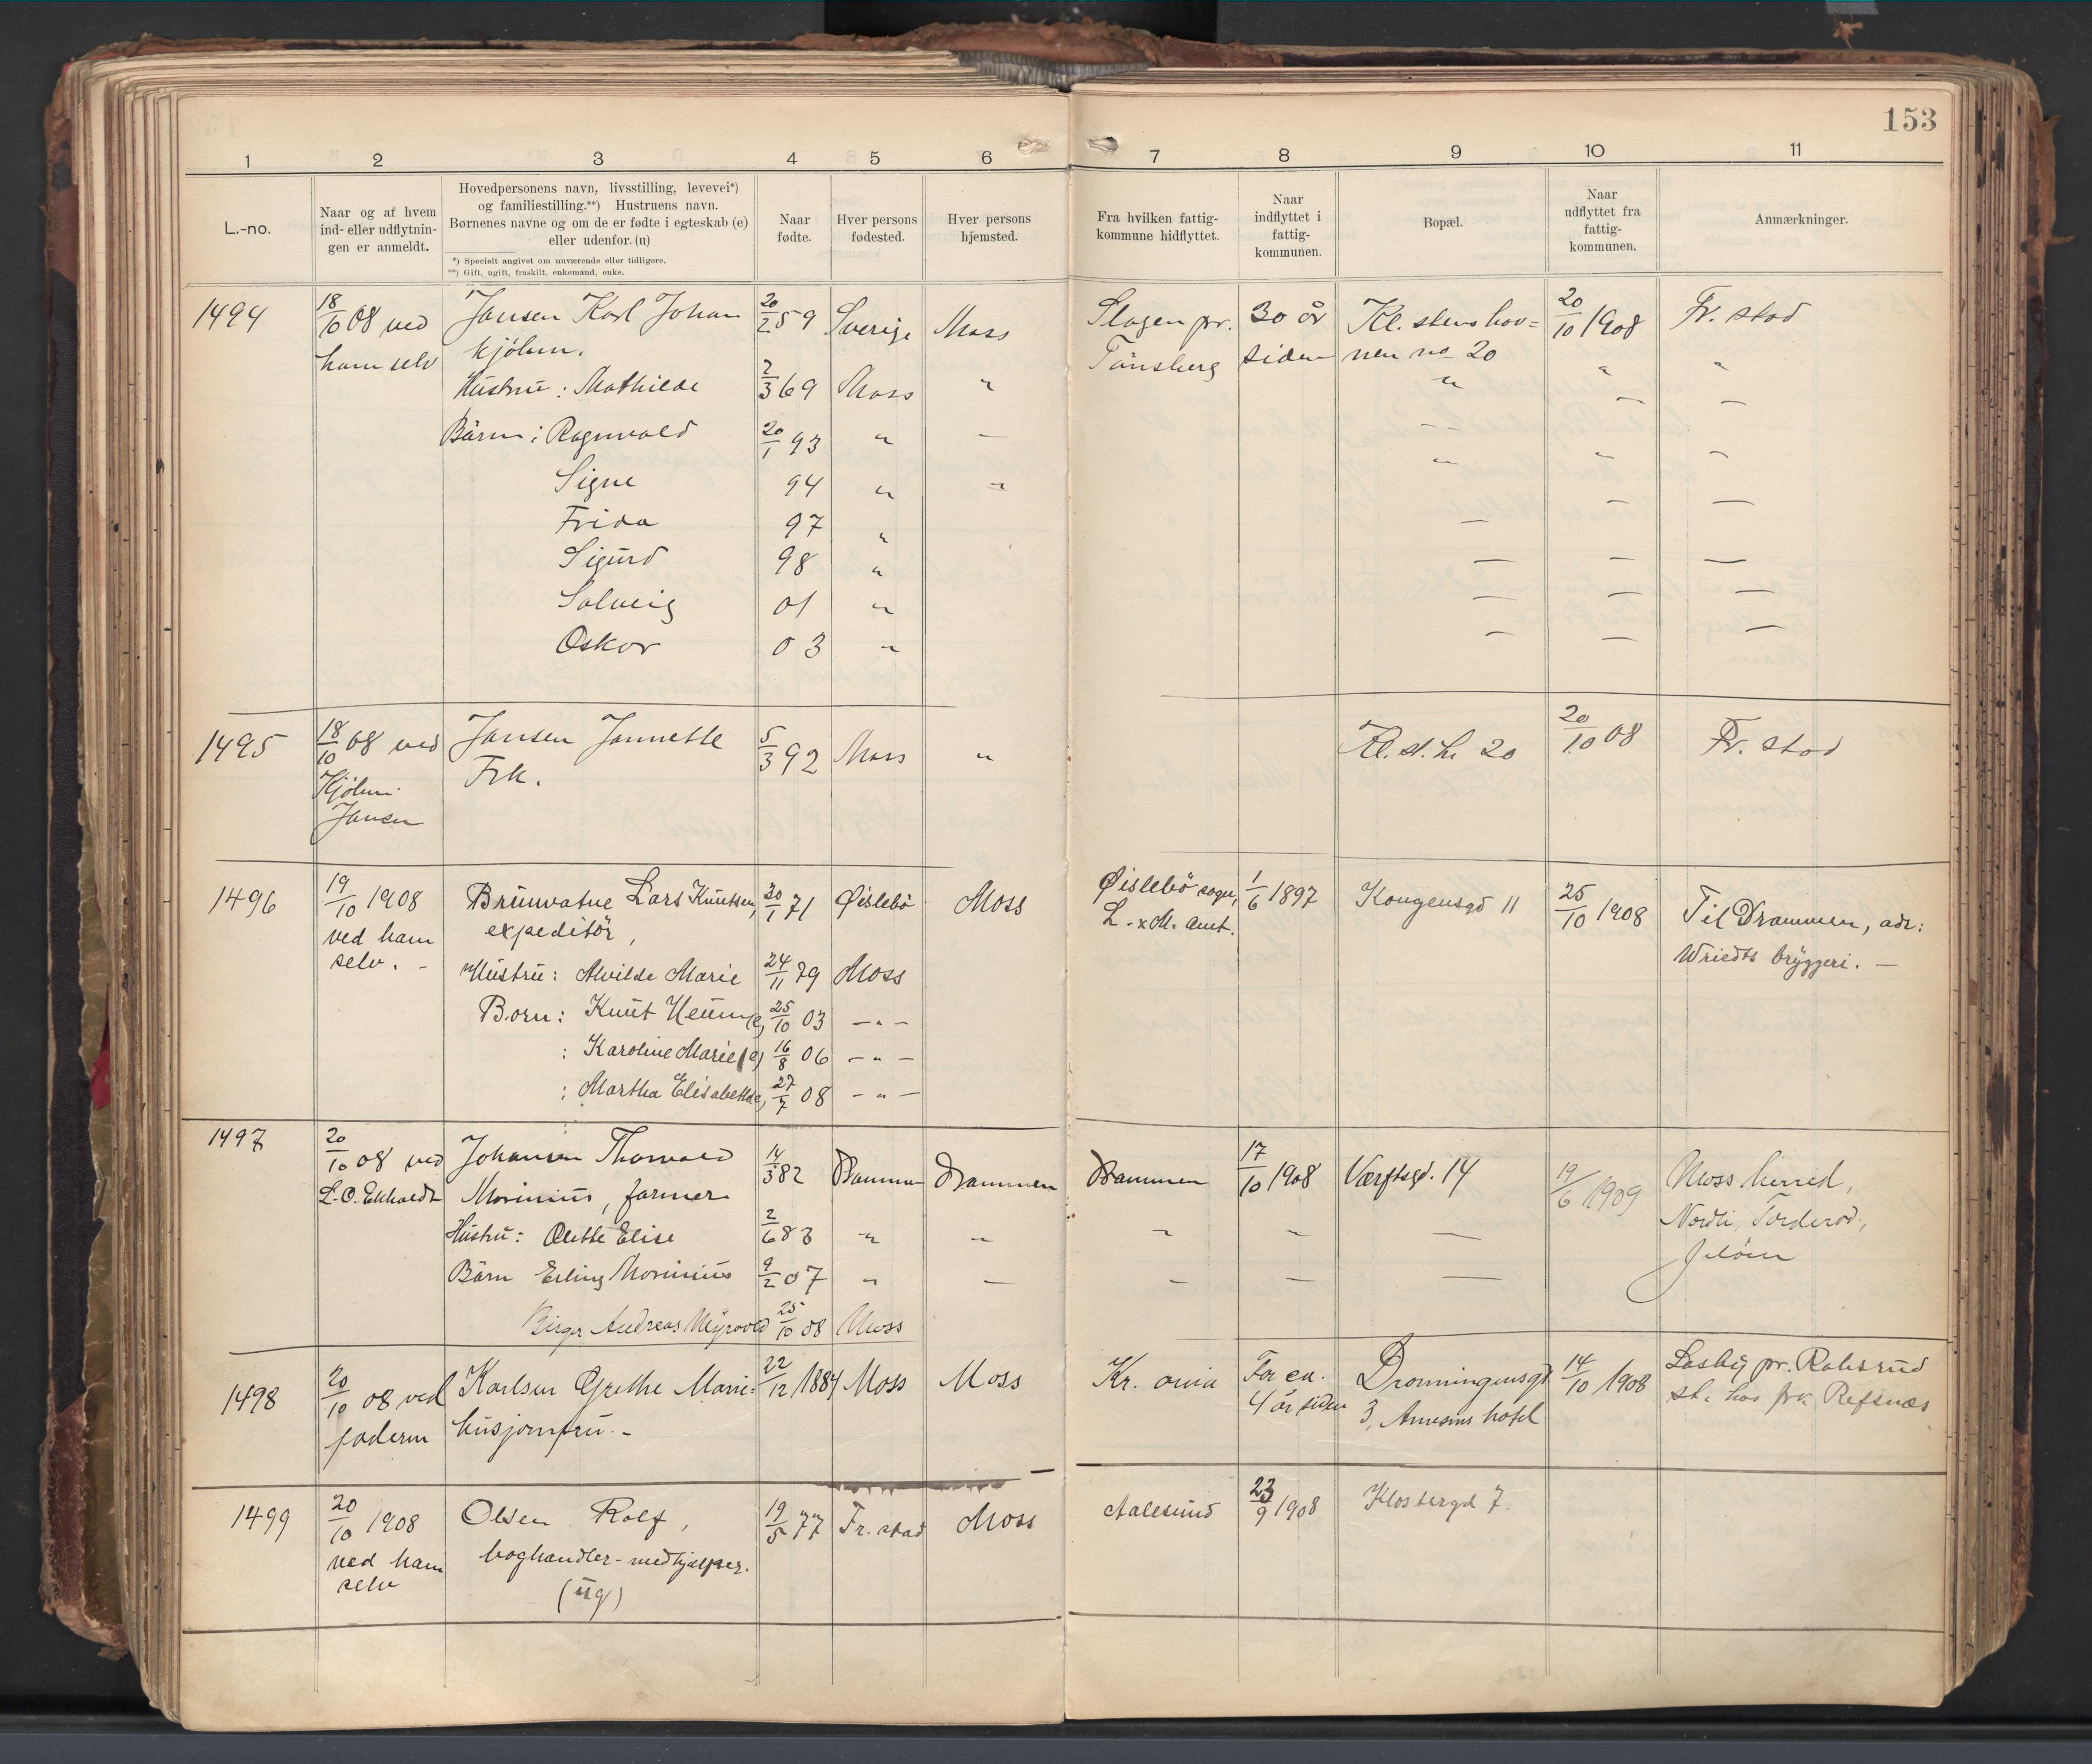 153
1 2 3 4 5 6 7 8 9 10 11
L.-no.
Naar og af hvem
ind- eller udflytnin-
gen er anmeldt.
Hovedpersonens navn, livsstilling, levevei*)
og familiestilling.**) Hustruens navn.
Børnenes navne og om de er fødte i egteskab (e)
eller udenfor. (u)
*) Specielt angivet om nuværende eller tidligere.
**) Gift, ugift, fraskilt, enkemand, enke.
Naar
fødte.
Hver persons
fødested.
Hver persons
hjemsted.
Fra hvilken fattig-
kommune hidflyttet.
Naar
indflyttet i
fattig-
kommunen.
Bopæl.
Naar
udflyttet fra
fattig-
kommunen.
Anmærkninger.
1494 18/10 08 ved Jansen Karl Johan 20/2 59 Sverige Moss Slagen pr. 30 år Kl. stens hav= 20/10 1908 Fr. stad
ham selv kjøbm. Tønsberg siden nen no 20
Hustru: Mathilde 2/3 69 Moss " " " "
Børn: Ragnvald 20/1 93 " — - - — —
Signe 94 " " " " "
Frida 97 " — — —
Sigurd 98 " — — —
Solveig 01 " — — —
Oskar 03 " — — —
1495 18/10 08 ved Jansen Jannette 5/3 92 Moss " Kl. st. h. 20 20/10 08 Fr. stad
Kjøbm. Frk.
Jansen
1496 19/10 1908 Brunvatne Lars Knutsen, 30/1 71 Øislebö Moss Øislebö sogn, 1/6 1897 Kongensgd 11 25/10 1908 Til Drammen, adr:
ved ham expeditör, L. x M. amt. Wriedts bryggeri. —
selv. -
Hustru: Alvilde Marie 24/11 79 Moss
Born: Knut (e) 25/10 03 — " —
: Karoline Marie (e) 16/8 06 — " —
: Martha Elisabeth (e) 27/7 08 — " —
1497 20/10 08 ved Johansen Thorvald 14/3 82 Drammen Drammen Drammen 17/10 1908 Værftsgd. 14 19/6 1909 Moss herred,
L. O. Ekholdt Marinius, farmer Nordli, Torderød,
Hustru: Olette Elise 2/6 83 " " " " — Jeløen
Børn Erling Marinius 9/2 07 " — " — —
Birger Andreas Myrvold 25/10 08 Moss
1498 20/10 08 ved Karlsen Grethe Marie= 22/12 1884 Moss Moss Kr. ania For ca. Dronningensgd 14/10 1908 Løsby pr. Rakerud
faderen husjomfru. - 4 år siden 3, hotel st. hos frk. Refsnæs
1499 20/10 1908 Olsen Rolf, 19/5 77 Fr. stad Moss Aalesund 23/9 1908 Klostergd 7.
ved ham boghandler-medhjælper.
selv (ug)